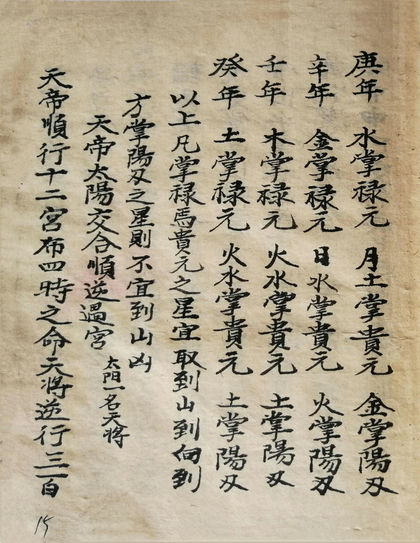 庚年 水掌禄元 月土掌貴元 金掌陽刃
辛年 金掌禄元 日水掌貴元 火掌陽刃
壬年 木掌禄元 火水掌貴元 土掌陽刃
癸年 土掌禄元 火水掌貴元 土掌陽刃
以上凡掌禄馬貴元之星宜取到山到向到
方掌陽刃之星則不宜到山凶
天帝太陽交合順逆過宮 太阳一名天将
天帝順行十二宮布四時之命天将逆行三百
15